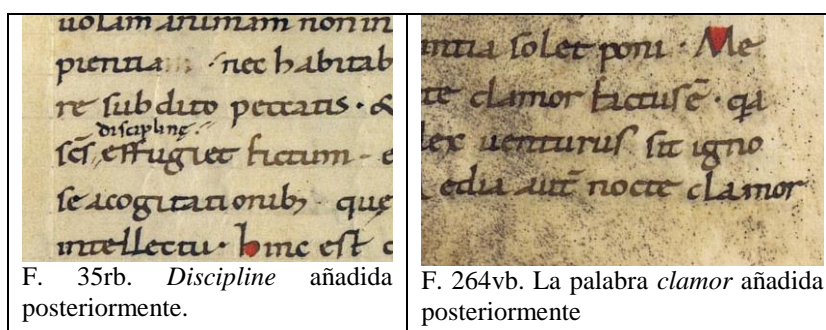 uolam animam non in
pientiam · nec habitab
re subdito peccatis · &
disciplinę
scs̄ effugiet fictum · e
se acogitationib; que
intellectu · hinc est c
F. 35rb. Discipline añadida
posteriormente.
ntia solet poni · Me
te clamor factus ē · qa
ex uenturus sit igno
edia aut̄ nocte clamor
F. 264vb. La palabra clamor añadida
posteriormente